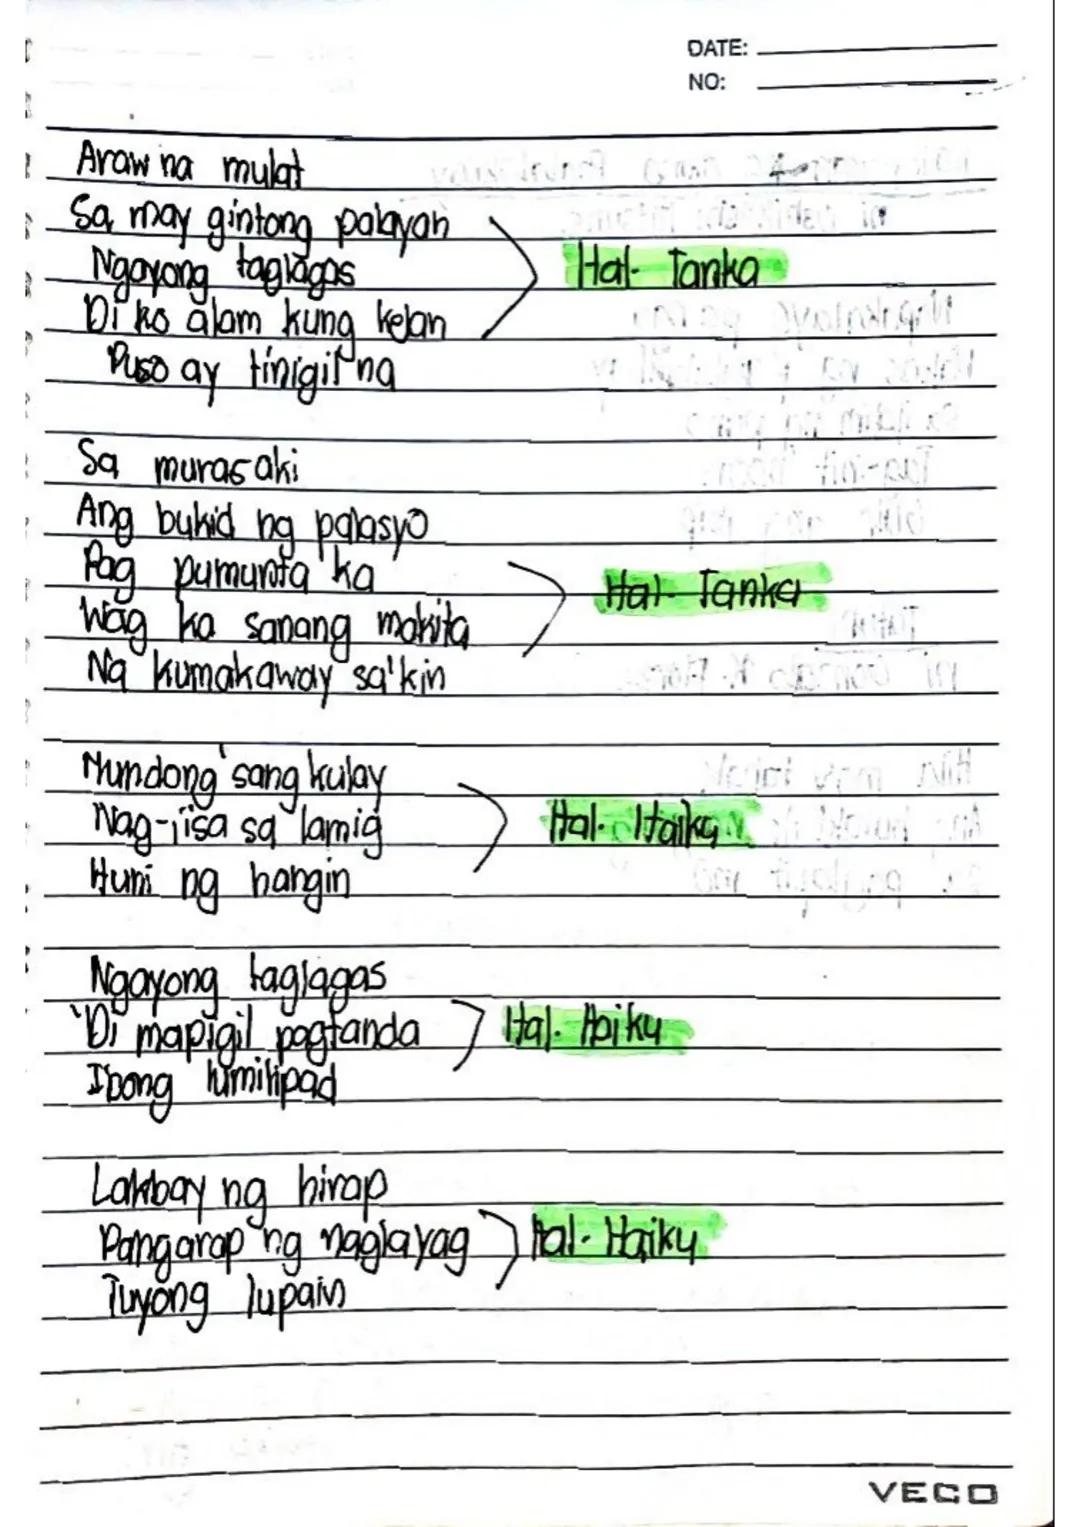 DATE:
NO:
Araw na mulat
Sa may gintong palayan
Ngayong taglagas
Di ko alam kung kelan
Puso ay tinigil na
Hal- Tanka
Sa murasaki
Ang bukid ng palasyo
Pag pumunta ka
Wag ka sanang makita
Na kumakaway sa'kin
Hal- Tanka
Mundong 'sang kulay
Nag-iisa sa lamig
Huni ng hangin
Hal. Haiku
Ngayong taglagas
'Di mapigil pagtanda
Ibong lumilipad
Hal. Haiku
Lakbay ng hirap
Pangarap ng naglayag
Tuyong lupain
Hal. Haiku
VECO